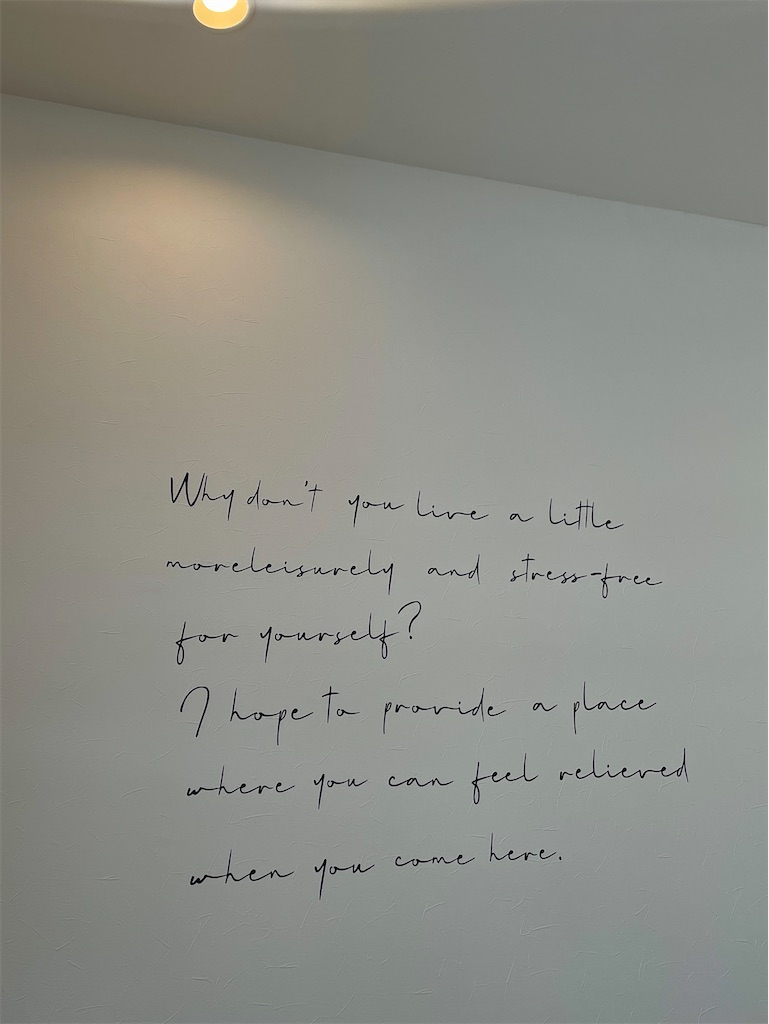 Why don't you live a little
moreleisurely and stress-free
for yourself?
I hope to provide a place
where you can feel relieved
when you come here.